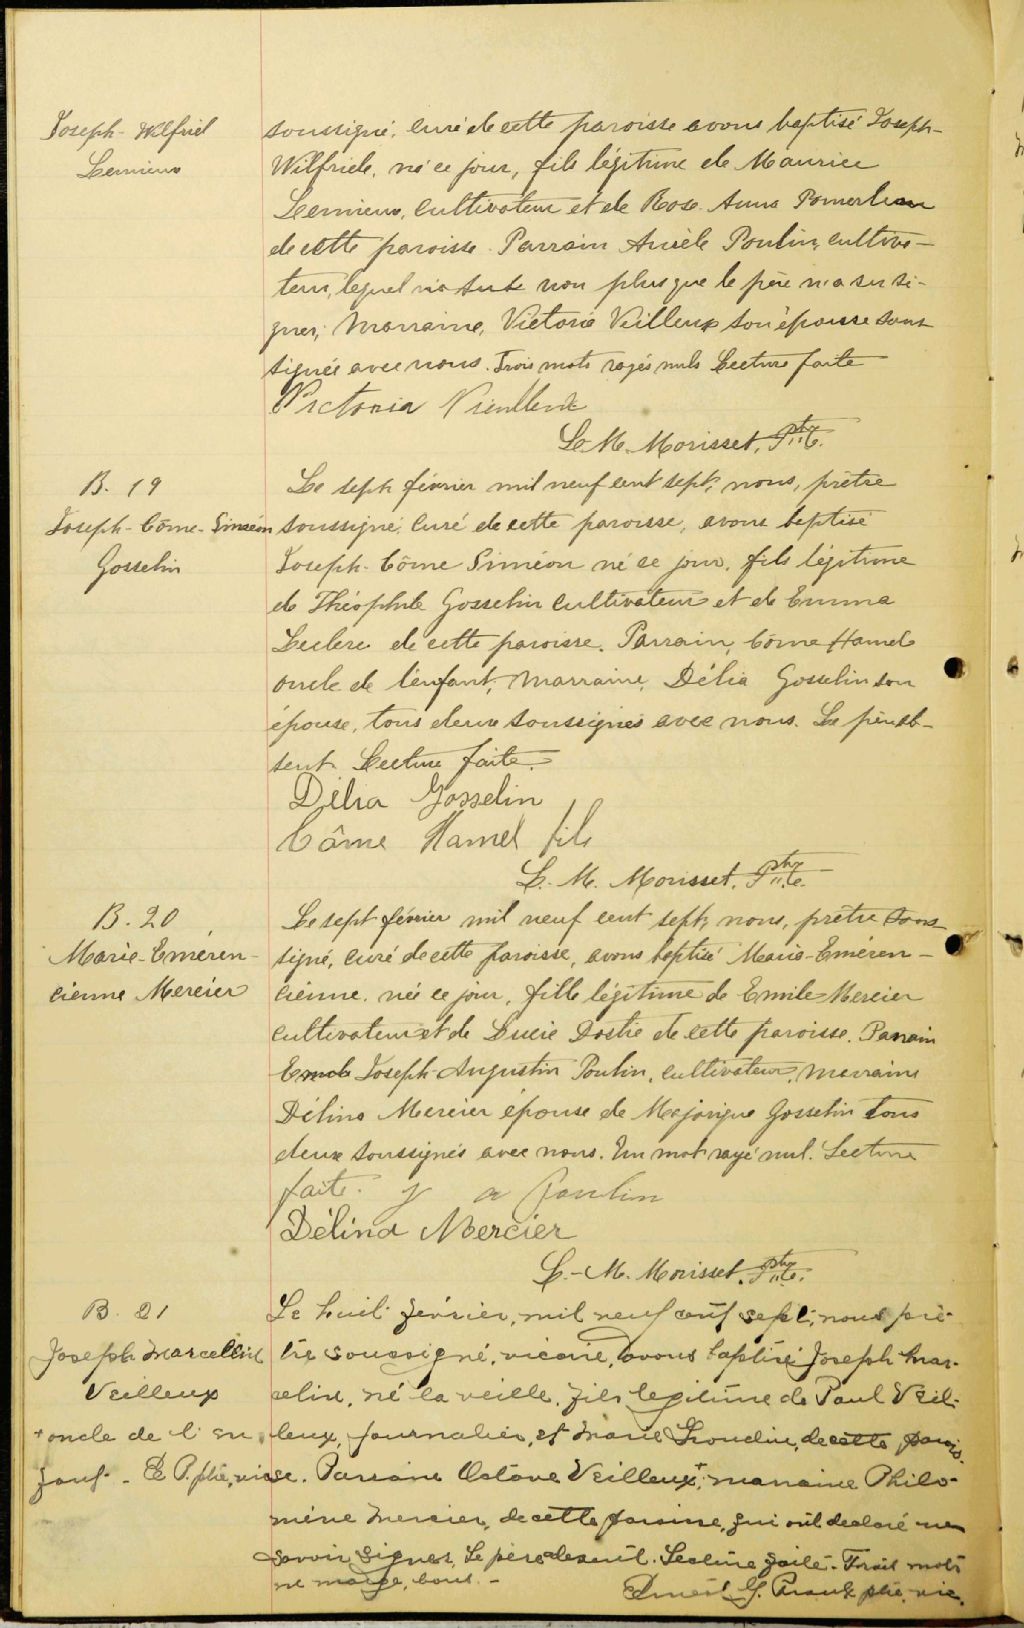 Joseph-Wilfrid
Lemieux
soussigné, curé de cette paroisse avons baptisé Joseph-
Wilfrid, né ce jour, fils légitime de Maurice
Lemieux, cultivateur et de Rose Anna Pomerleau
de cette paroisse. Parrain Poulin, cultiva-
teur, lequel n'a su non plus que le père n'a su si-
gner; Marraine, Victoria Veilleux son épouse sous
signée avec nous. Trois mots rayés nuls Lecture faite
Victoria Vieulleux
L. M. Morisset, Ptre
B. 19
Joseph-Côme-Siméon
Gosselin
Le sept février mil neuf cent sept, nous, prêtre
soussigné, curé de cette paroisse, avons baptisé
Joseph-Côme Siméon né ce jour, fils légitime
de Théophile Gosselin cultivateur et de Emma
Leclerc de cette paroisse. Parrain, Côme Hamel
oncle de l'enfant, marraine, Délia Gosselin son
épouse, tous deux soussignés avec nous. Le père ab-
sent. Lecture faite.
Délia Gosselin
Côme Hamel fils
L. M. Morisset, Ptre
B. 20
Marie-Eméren-
cienne Mercier
Le sept février mil neuf cent sept, nous, prêtre sous
signé, curé de cette paroisse, avons baptisé Marie-Eméren-
cienne, née ce jour, fille légitime de Emile Mercier
cultivateur et de Lucie Dostie de cette paroisse. Parrain
Joseph Augustin Poulin, cultivateur, marraine
Délina Mercier épouse de Majorique Gosselin tous
deux soussignés avec nous. Un mot rayé nul. Lecture
faite. J a Poulin
Délina Mercier
L.-M. Morisset, Ptre
B. 21
Joseph Marcellin
Veilleux
+ oncle de l'en
fant - E P. ptre, vic
Le huit février, mil neuf cent sept, nous prê-
tre soussigné, vicaire, avons baptisé Joseph Mar-
celin, né la veille, fils légitime de Paul Veil-
leux, journalier, et Marie Grondin, de cette parois-
se. Parrain Octave Veilleux+, marraine Philo-
mène Mercier, de cette paroisse, qui ont declaré ne
savoir signer. Le père absent. Lecture faite. Trois mots
en marge, bons. -
Ernest G. ptre, vic.